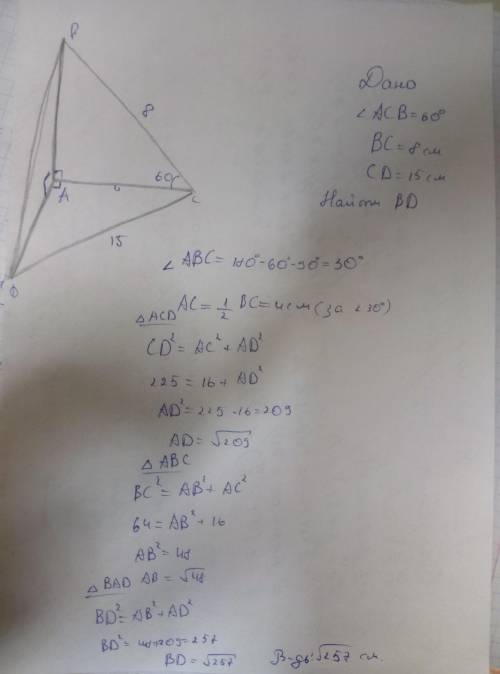 B
8
60°
A
C
15
D
Дано
∠ACB=60°
BC=8 см
CD=15 см
Найти BD
∠ABC=180°-60°-90°=30°
△ACD AC=1/2 BC=4см (за ∠30°)
CD²=AC²+AD²
225=16+AD²
AD²=225-16=209
AD=√209
△ABC
BC²=AB²+AC²
64=AB²+16
AB²=48
△BAD AB=√48
BD²=AB²+AD²
BD²=48+209=257
BD=√257 В-дь:√257 см.